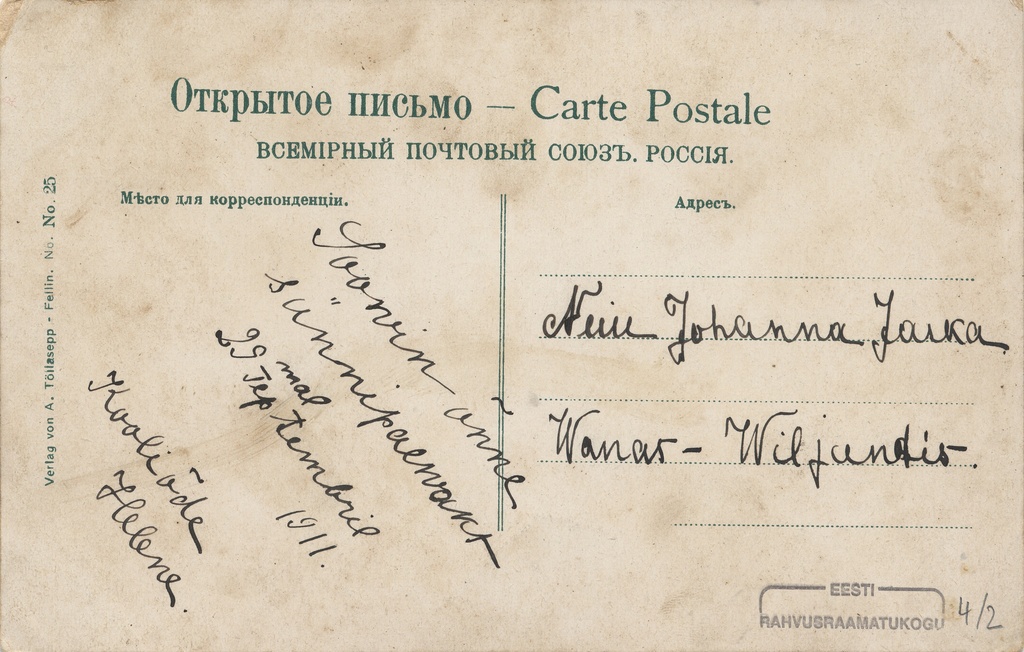 Открытое письмо — Carte Postale
ВСЕМІРНЫЙ ПОЧТОВЫЙ СОЮЗЪ. РОССІЯ.
Мѣсто для корреспонденціи.
Адресъ.
Verlag von A. Tõllasepp - Fellin. No. No. 25
Soovin õnne
sünnipaevaks
29 mal
Septembril
1911.
Kooliõde
Helene.
Neiu Johanna Jaska
Wanas - Wiljandis.
EESTI
RAHVUSRAAMATUKOGU
4/2